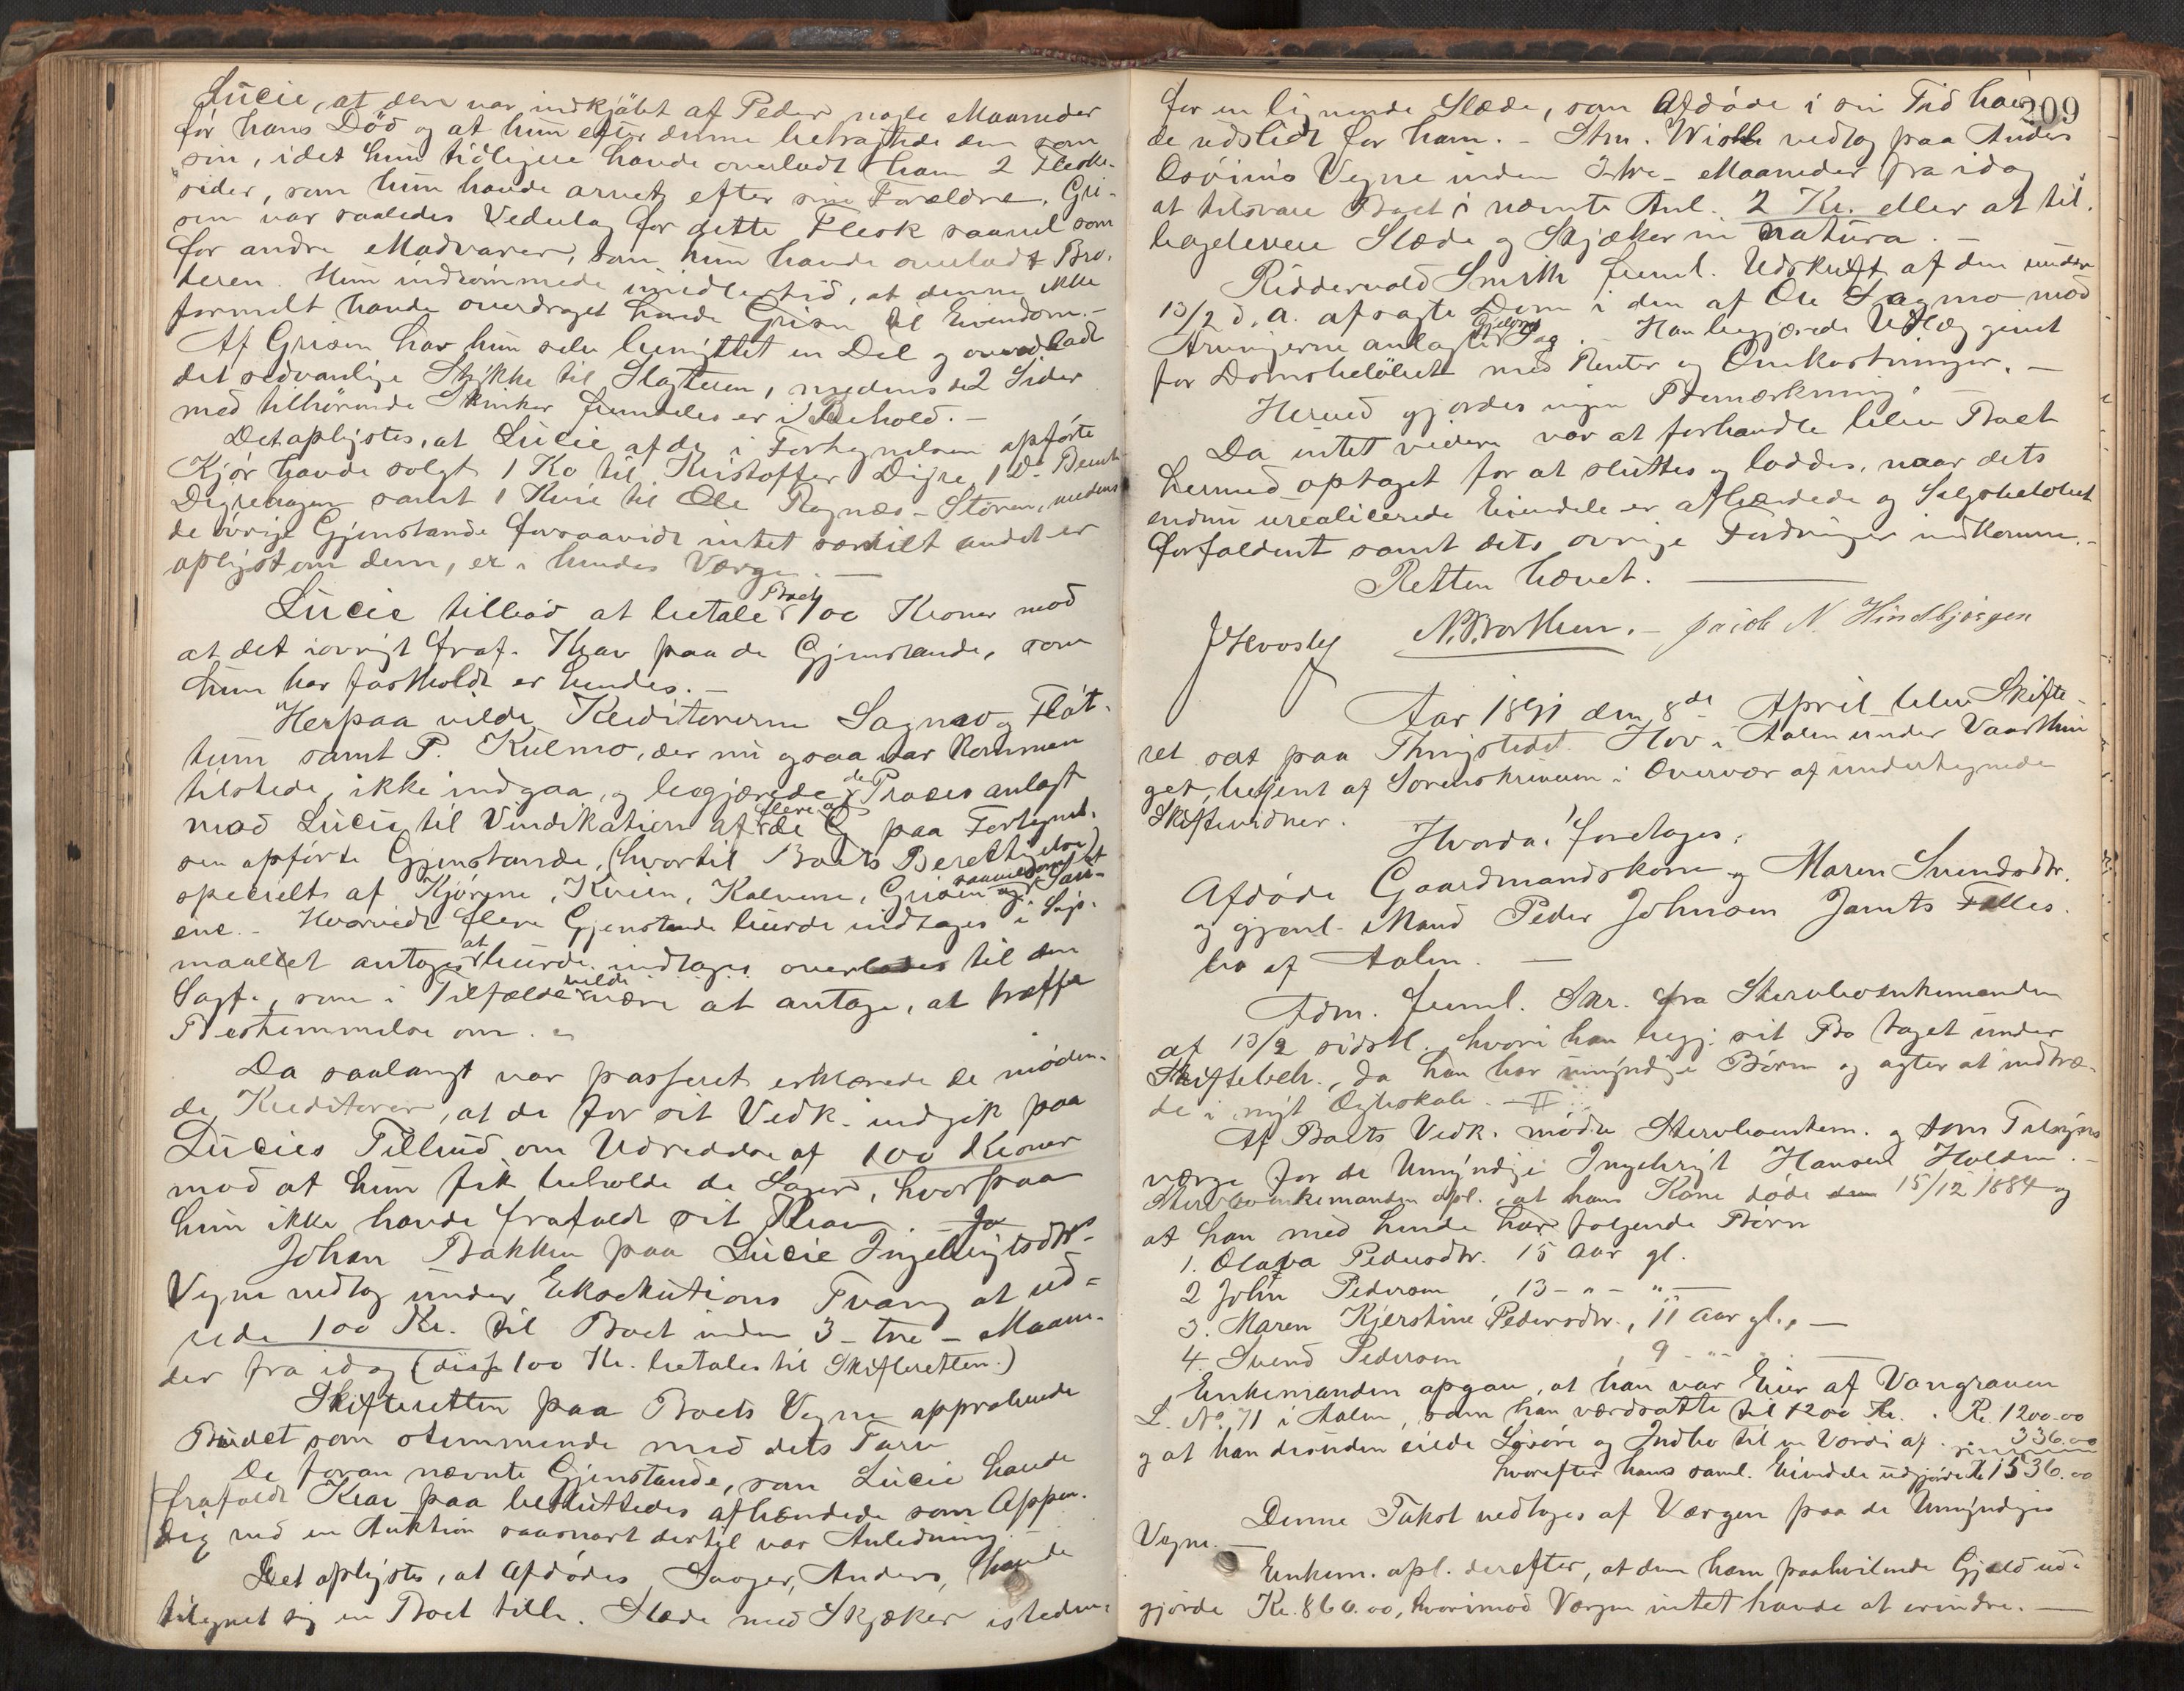 Lucie, at den var indkjøbt af Peder nogle Maaneder
før hans Død og at hun efter denne betragtede den som
sin, idet hun tidligere havde overladt ham 2 Fleske-
sider, som hun havde arvet efter sine Forældre. Gri-
sen var saaledes Vederlag for dette Flesk saavel som
for andre Madvarer, som hun havde overladt Bro-
deren. Hun indrømmede imidlertid, at denne ikke
formelt havde overdraget hende Grisen til Eiendom. -
Af Grisen har hun selv benyttet en Del og overladt
det sedvanlige Stykke til Slagteren, medens de 2 Sider
med tilhørende Skinker fremdeles er i Behold. -
Det oplystes, at Lucie af de i Fortegnelsen opførte
Kjør havde solgt 1 Ko til Kristoffer Digre, 1 Do Bernt
Digrehagen samt 1 Kvie til Ole Rognæs - Støren, medens
de øvrige Gjenstande forsaavidt intet særskilt andet er
oplyst om dem, er i hendes Værge. -
Lucie tilbød at betale Boet 100 Kroner mod
at det iøvrigt fraf. Krav paa de Gjenstande, som
hun har fastholdt er hendes. -
Herpaa vilde Kreditorerne Sagmo og Fløt-
tum samt P. Kulmo, der nu ogsaa var kommen
tilstede, ikke indgaa, og begjærede de Proces anlagt
mod Lucie til Vindikation af flere af de paa Fortegnel-
sen opførte Gjenstande, (hvortil Boets Berettigelse)
specielt af Kjørene, Kvien, Kalvene, Grisen og saavelsom Sau-
ene. - Hvorvidt flere Gjenstande burde indtages i Søgs-
maalet antoges at burde indtages overlades til den
Sagf., som i Tilfælde vilde være at antage, at træffe
Bestemmelse om. -
Da saalangt var passeret erklærede de møden-
de Kreditorer, at de for sit Vedk. indgik paa
Lucies Tilbud om Udredelse af 100 Kroner
mod at hun fik beholde de Sager, hvorpaa
hun ikke havde frafaldt sit Krav. - Jo
Johan Bakken paa Lucie Ingebrigtsdtrs
Vegne vedtog under Eksekutions Tvang at ud-
rede 100 Kr. til Boet inden 3 - tre - Maane-
der fra idag (disse 100 Kr. betales til Skifteretten.)
Skifteretten paa Boets Vegne approberede
Budet som stemmende med dets Tarv
De foran nævnte Gjenstande, som Lucie havde
frafaldt Krav paa besluttedes afhændede som Appen-
dix ved en Auktion saasnart dertil var Anledning. -
Det oplystes, at Afdødes Svoger, Anders, havde
tilegnet sig en Boet tilh. Slæde med Skjæker isteden-
209
for en lignende Slæde, som Afdøde i sin Tid hav-
de udslidt for ham. - Stm. Wisth vedtog paa Anders
Vegne inden 3 - tre - Maaneder fra idag
at tilsvare Boet i nævnte Anl. 2 Kr. eller at til-
bagelevere Slæde og Skjæker in natura. -
Riddervold Smith freml. Udskrift af den under
13/2 d. A. afsagte Dom i den af Ole Sagmo mod
Arvingerne anlagte Gjelds Sag. - Han begjærede Udlæg givet
for Domsbeløbet med Renter og Omkostninger. -
Herved gjordes ingen Bemærkning. -
Da intet videre var at forhandle blev Boet
hermed optaget for at sluttes og loddes, naar dets
endnu urealiserede Eiendele er afhændede og Salgsbeløbet
forfaldent samt dets øvrige Fordringer indkomne. -
Retten hævet. -
J Hvoslef N. Borthen. - Jacob N. Hindbjørgen
Aar 1891 den 8de April blev Skifte-
ret sat paa Thingstedet Hov i Aalen under Vaarthin
get, betjent af Sorenskriveren i Overvær af undertegnede
Skiftevidner.
Hvorda foretoges:
Afdøde Gaardmandskone Maren Svendsdtr.
og gjenl. Mand Peder Johnsen Jamts Fælles-
bo af Aalen. -
Adm. freml. Skr. fra Stervboenkemanden
af 13/2 sidstl. hvori han begj. sit Bo taget under
Skiftebeh., da han har umyndige Børn og agter at indtræ-
de i nyt Ægteskab. -
Af Boets Vedk. mødte Stervboenkem. og som Tilsyns
værge for de Umyndige Ingebrigt Hansen Holden. -
Stervboenkemanden opl., at hans Kone døde den 15/12 1884 og
at han med hende har følgende Børn
1. Olava Pedersdtr. 15 Aar gl.
2 John Pedersen, 13 - " - " -
3. Maren Kjerstine Pedersdtr., 11 Aar gl., -
4. Svend Pedersen , 9 - " - " -
Enkemanden opgav, at han var Eier af Vongraven
L. No. 71 i Aalen, som han værdsatte til 1200 Kr. . Kr. 1200.00
og at han desuden eiede Løsøre og Indbo til en Værdi af . 336.00
hvorefter hans saml. Eiendele udgjorde Kr 1536.00
Denne Takst vedtoges af Værgen paa de Umyndiges
Vegne. -
Enkem. opl. derefter, at den ham paahvilende Gjæld ud-
gjorde Kr. 860.00, hvorimod Værgen intet havde at erindre. -